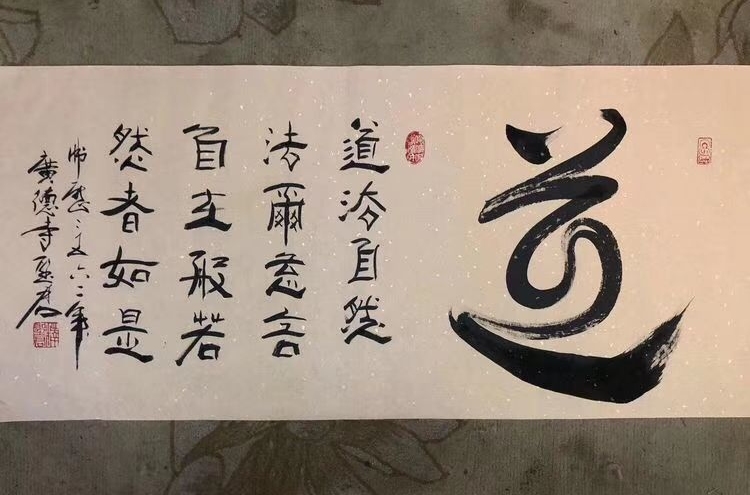 道
道法自然
法爾
自主般若
然者如是
佛歷二五六二年
廣德寺